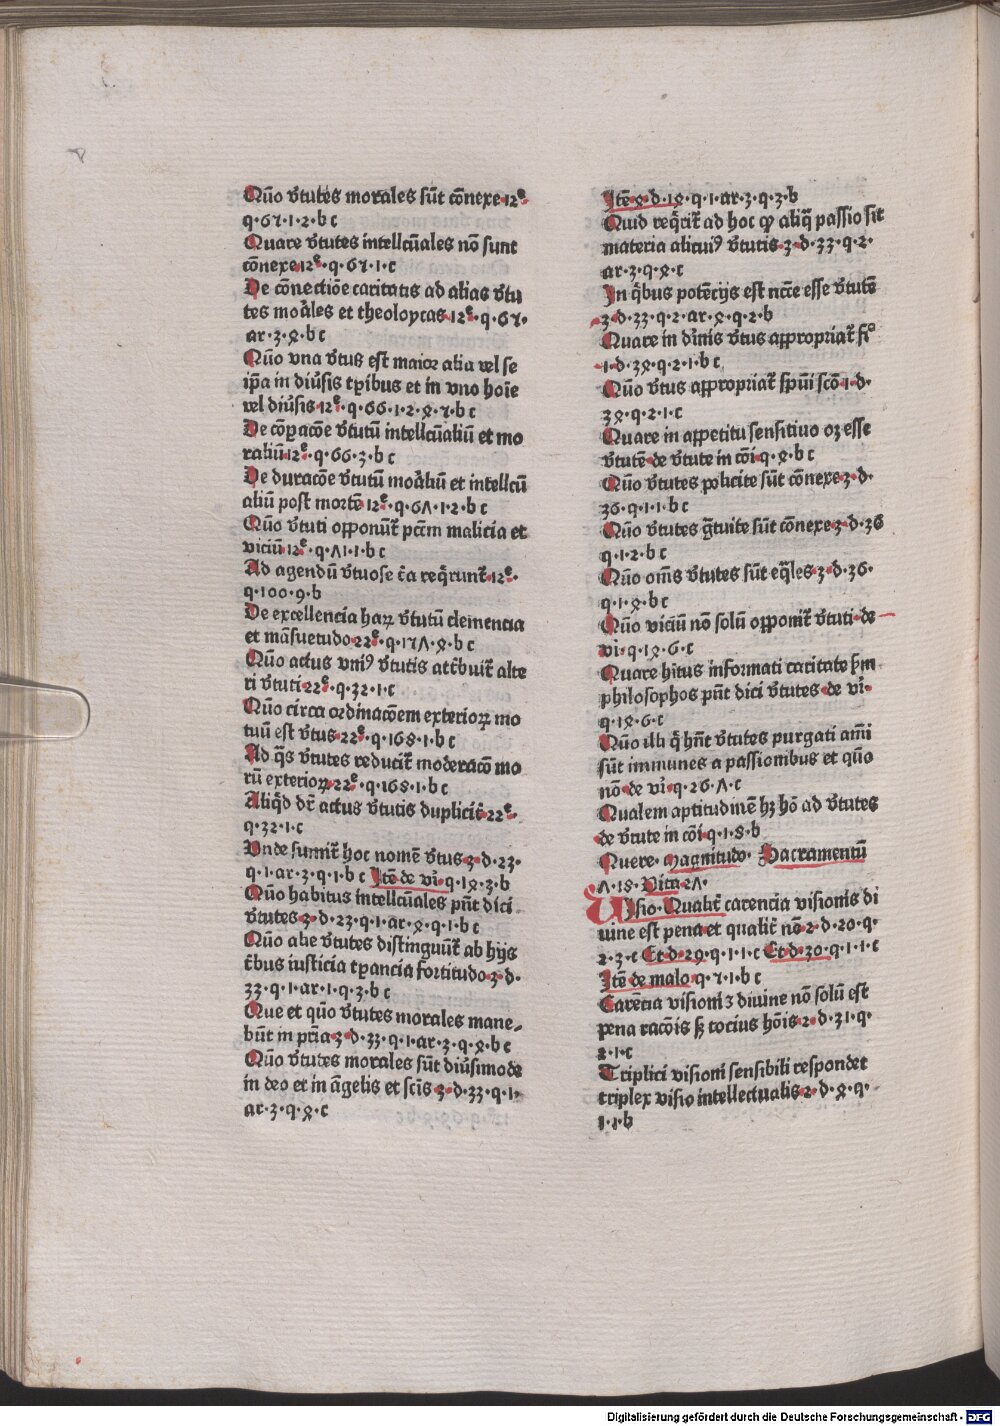 Quō v̄tutes morales sūt cōnexe·12ͤ·
q·67·1·2·b c
Quare v̄tutes intellcūales nō sunt
cōnexe·12ͤ·q·67·1·c
De cōnectiōe caritatis ad alias v̄tu
tes moāles et theoloycas·12ͤ·q·67·
ar·3·ꝝ·b c
Quō vna v̄tus est maior alia vel se
ip̄a in diūsis tp̄ibus et in vno hoīe
vel diūsis·12ͤ·q·66·1·2·ꝝ·7·b c
De cōꝑacōe v̄tutū intellcūaliū et mo
raliū·12ͤ·q·66·3·b c
De duracōe v̄tutū moāliū et intellcū
aliū post mortē·12ͤ·q·6Λ·1·2·b c
Quō v̄tuti opponūt᷑ pctm malicia et
viciū·12ͤ·q·Λ1·1·b c
Ad agendū v̄tuose t̄ia req̄runt᷑·12ͤ·
q·100·9·b
De excellencia haꝝ v̄tutū clemencia
et māsuetudo·22ͤ·q·17Λ·ꝝ·b c
Quō actus vniꝰ v̄tutis att̄buit᷑ alte
ri v̄tuti·22ͤ·q·32·1·c
Quō circa ordinacōem exterioꝝ mo
tuū est v̄tus·22ͤ·q·168·1·b c
Ad q̄s v̄tutes reducit᷑ moderacō mo
rū exterioꝝ·22ͤ·q·168·1·b c
Aliq̄d dr̄ actus v̄tutis duplicit᷑·22ͤ·
q·32·1·c
Vnde sumit᷑ hoc nomē v̄tus·3·d·23·
q·1·ar·3·q·1·b c Itē de vi·q·1ꝝ·3·b
Quō habitus intellcūales pn̄t dici
v̄tutes·3·d·23·q·1·ar·ꝝ·q·1·b c
Quō alie v̄tutes distinguūt᷑ ab hijs
t̄bus iusticia tꝑancia fortitudo·3·d·
33·q·1·ar·1·q·3·b c
Que et quō v̄tutes morales mane-
būt in pr̄ia·3·d·33·q·1·ar·3·q·ꝝ·b c
Quō v̄tutes morales sūt diūsimode
in deo et in āgelis et scīs·3·d·33·q·1·
ar·3·q·ꝝ·c
Itē·ꝝ·d·1ꝝ·q·1·ar·3·q·3·b
Quid req̄rit᷑ ad hoc ꝙ aliq̄ passio sit
materia alicuiꝰ v̄tutis·3·d·33·q·2·
ar·3·q·ꝝ·c
In q̄bus potēcijs est nct̄e esse v̄tutē
3·d·33·q·2·ar·ꝝ·q·2·b
Quare in diūnis v̄tus appropriat᷑ fi°
1·d·3ꝝ·q·2·1·b c
Quō v̄tus appropriat᷑ spūi scō·1·d·
3ꝝ·q·2·1·c
Quare in appetitu sensitiuo oꝫ esse
v̄tutē·de v̄tute in cōi·q·ꝝ·b c
Quō v̄tutes policite sūt cōnexe·3·d·
36·q·1·1·b c
Quō v̄tutes ḡtuite sūt cōnexe·3·d·36
q·1·2·b c
Quō om̄s v̄tutes sūt eq̄les·3·d·36·
q·1·ꝝ·b c
Quō viciū nō solū opponit᷑ v̄tuti·de
vi·q·1ꝝ·6·c
Quare hitus informati caritate s̄m
philosophos pn̄t dici v̄tutes·de vi·
q·1ꝝ·6·c
Quō illi q̄ hn̄t v̄tutes purgati aīmi
sūt immunes a passionibus et quō
nō·de vi·q·26·Λ·c
Qualem aptitudinē hꝫ hō ad v̄tutes
de v̄tute in cōi·q·1·8·b
Quere·magnitudo·Sacramentū
Λ·18·Vita·2Λ·
Visio·Qualit᷑ carencia visionis di
uine est pena et qualit᷑ nō·2·d·20·q·
2·3·c Et·d·29·q·1·1·c Et·d·30·q·1·1·c
Itē de malo·q·7·1·b c
Carēcia visionis diuine nō solū est
pena racōis sꝫ tocius hōis·2·d·31·q·
2·1·c
Triplici visioni sensibili respondet
triplex visio intellectualis·2·d·ꝝ·q·
1·1·b
Digitalisierung gefördert durch die Deutsche Forschungsgemeinschaft - DFG